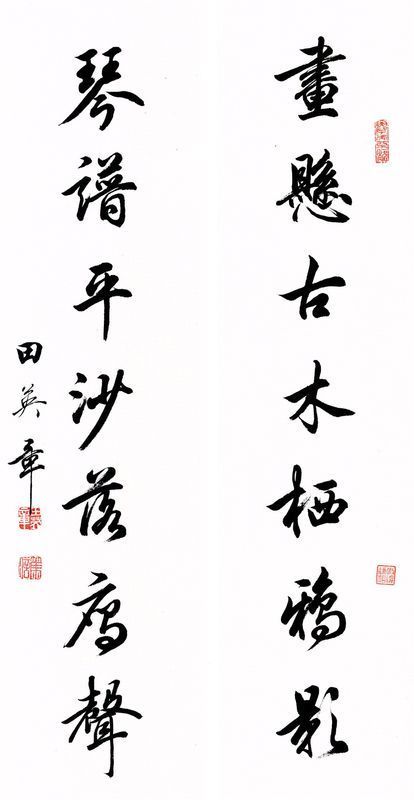 畫懸古木栖鴉影
琴譜平沙落鴈聲
田英章